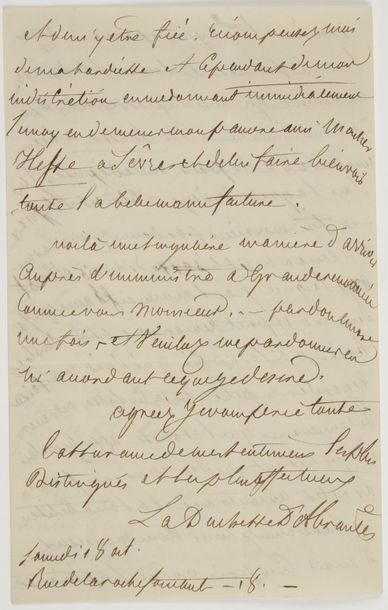 et d'en y être fixé. Récompensez mois
de ma hardiesse et cependant de mon
indiscrétion en me donnant immédiatement
moyen de mener mon pauvre ami Monsieur
Hesse à Sèvres et de lui faire bien voir
toute la belle manufacture.
voilà une singulière manière d'arriver
auprès d'un ministre à grande
comme vous Monsieur. - pardon encore
une fois - et veuillez me pardonner en
lui accordant ce que je desire.
agréez je vous prie toute
l'assurance de mes sentiments les plus
distingués et les plus affectueux
La Duchesse D'Abrantès
Samedi 18 oct.
Rue de la rochefoucault - 18. -